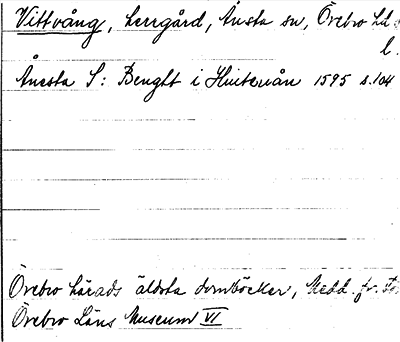 Vittvång, herrgård, Ånsta sn, Örebro hd
l.
Ånesta S: Benght i Huitenån 1595 s. 104
Örebro härads äldsta domböcker, Medd. fr.
Örebro Läns Museum VI